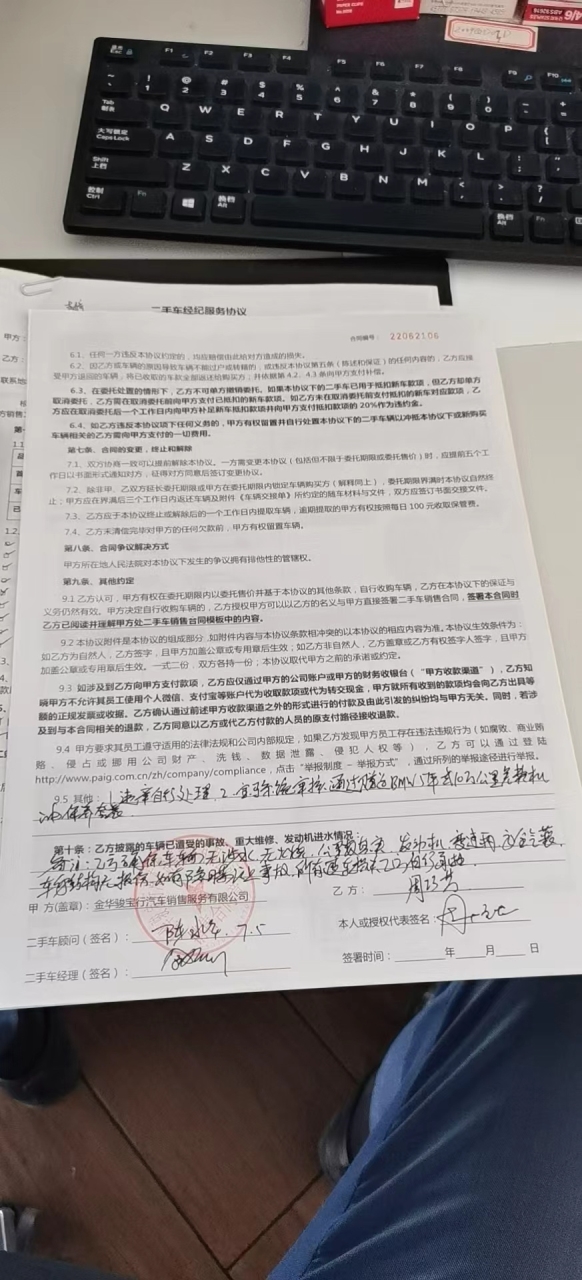 二手车经纪服务协议
合同编号： 22062106
6.1、任何一方违反本协议约定的，均应赔偿由此给对方造成的损失。
6.2、因乙方或车辆的原因导致车辆不能过户或转籍的；或违反本协议第五条（陈述和保证）的任何内容的；乙方应接
受甲方退回的车辆；将已收取的车款全部返还给购买方；并依据第 4.2、4.3条向甲方支付补偿。
6.3、在委托处置的情形下，乙方不可单方撤销委托。如果本协议下的二手车已用于抵扣新车款项，但乙方却单方
取消委托，乙方需在取消委托前向甲方支付已抵扣的新车款项。如乙方未在取消委托前支付抵扣的新车对应款项，乙
方应在取消委托后一个工作日内向甲方补足新车抵扣款项并向甲方支付抵扣款项的 20%作为违约金。
6.4、如乙方违反本协议项下任何义务的，甲方有权留置并自行处置本协议下的二手车以冲抵本协议下或新购买
车辆相关的乙方需向甲方支付的一切费用。
第七条、合同的变更、终止和解除
7.1、双方协商一致可以提前解除本协议。一方需变更本协议（包括但不限于委托期限或委托售价）时，应提前五个工
作日以书面形式通知对方，征得对方同意后签订变更协议。
7.2、除非甲、乙双方延长委托期限或甲方在委托期限内锁定车辆购买方（解释同上），委托期限界满时本协议自然终
止；甲方应在界满后三个工作日内返还车辆及附件《车辆交接单》所约定的随车材料与文件，双方应签订书面交接文件。
7.3、乙方应于本协议终止或解除后的一个工作日内提取车辆，逾期提取的甲方有权按照每日 100 元收取保管费。
7.4、乙方未清偿完毕对甲方的任何欠款前，甲方有权留置车辆。
第八条、合同争议解决方式
甲方所在地人民法院对本协议下发生的争议有排他性的管辖权。
第九条、其他约定
9.1 乙方认可，甲方有权在委托期限内以委托售价并基于本协议的其他条款，自行收购车辆，乙方在本协议下的保证与
义务仍然有效。甲方决定自行收购车辆的，乙方授权甲方可以以乙方的名义与甲方直接签署二手车销售合同，签署本合同时
乙方已阅读并理解甲方处二手车销售合同模板中的内容。
9.2 本协议附件是本协议的组成部分，如附件内容与本协议条款相冲突的以本协议的相应内容为准。本协议生效条件为：
如乙方为自然人，乙方签字，且甲方加盖公章或专用章后生效；如乙方非自然人，乙方盖章或乙方有权签字人签字，且甲方
加盖公章或专用章后生效。一式二份，双方各持一份；本协议取代甲方之前的承诺或约定。
9.3 如涉及到乙方向甲方支付款项，乙方应仅通过甲方的公司账户或甲方的财务收银台（“甲方收款渠道”），乙方知
晓甲方不允许其员工使用个人微信、支付宝等账户代为收取款项或代为转交现金，甲方就所有收到的款项均会向乙方出具等
额的正规发票或收据。乙方确认通过前述甲方收款渠道之外的形式进行的付款及由此引发的纠纷均与甲方无关。同时，若涉
及到与本合同相关的退款，乙方同意以乙方或代乙方付款的人员的原支付路径接收退款。
9.4 甲方要求其员工遵守适用的法律法规和公司内部规定，如果乙方发现甲方员工存在违法违规行为（如腐败、商业贿
赂、侵占或挪用公司财产、洗钱、数据泄露、侵犯人权等），乙方可以通过登陆
http://www.paig.com.cn/zh/company/compliance，点击“举报制度 – 举报方式”，通过所列的举报途径进行举报。
9.5 其他：1.违章自行处理，2.
第十条：乙方披露的车辆已遭受的事故、重大维修、发动机进水情况
备注：乙方确保车辆无泡水，无火烧，公里数真实，发动机
甲 方(盖章)：金华骏宝行汽车销售服务有限公司
乙 方：
二手车顾问（签名）： 7.5
本人或授权代表签名：
二手车经理（签名）：
签署时间： 年 月 日